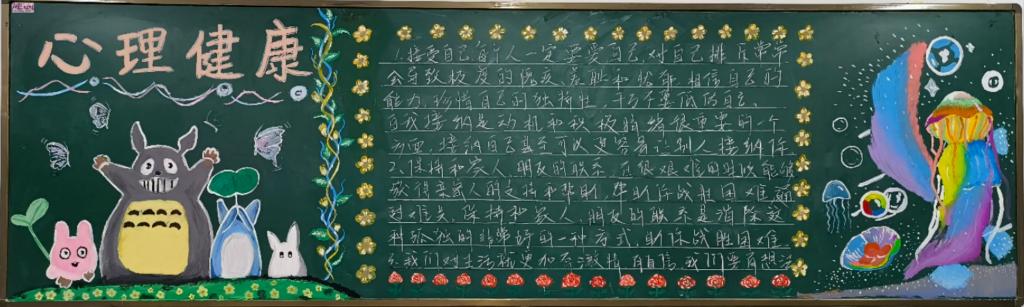 心理健康
1.接受自己每个人一定要爱自己,对自己排斥常常
会导致极度的愧疚、羞耻和忧郁相信自己的
能力,珍惜自己的独特性,千万不要低估自己。
自我接纳是动机和积极情绪很重要的一个
方面,接纳自己甚至可以更容易让别人接纳你
2、保持和家人、朋友的联系,在很艰难的时候能够
获得亲密人的支持和帮助,帮助你战胜困难,面
对难关,保持和家人、朋友的联系是消除这
种孤独的非常好的一种方式,助你战胜困难
3.我们对生活 更加 自信,我们要有想